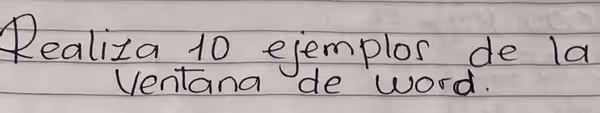 Realiza 10 ejemplos de la
Ventana de word.